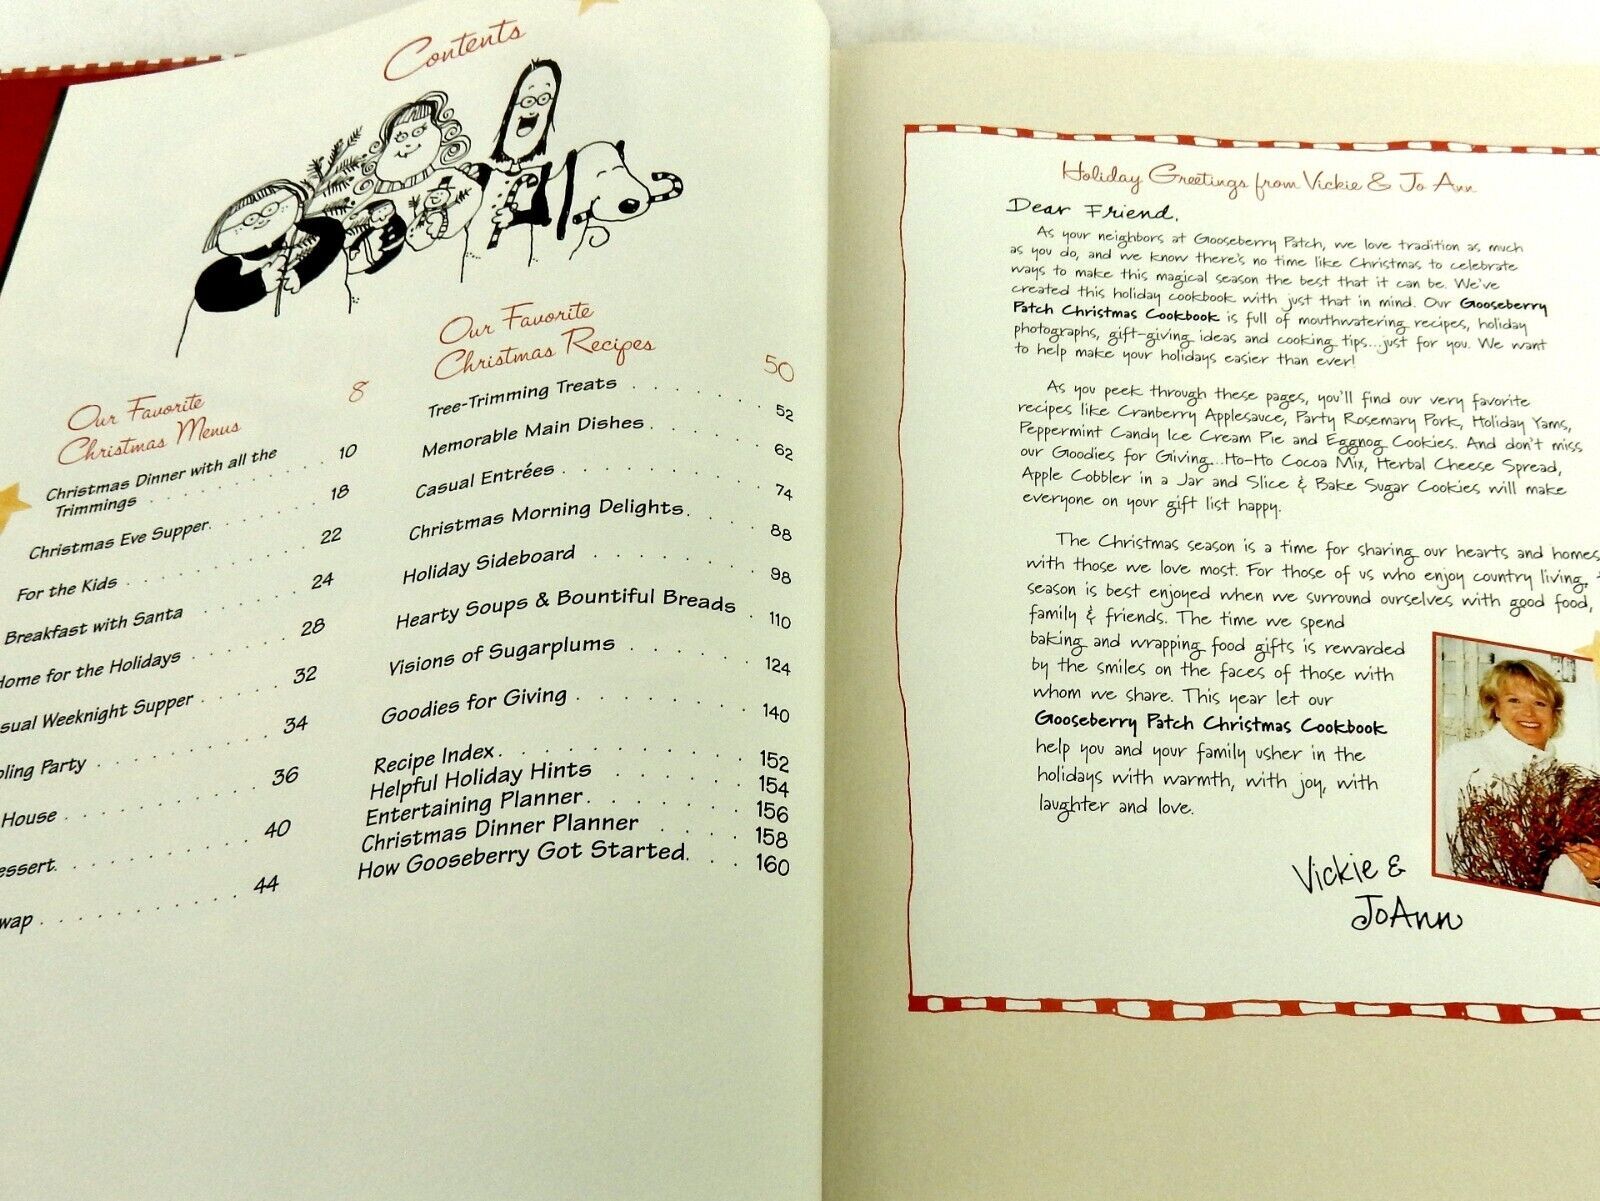 Contents
Our Favorite
Christmas Menus 8
Christmas Dinner with all the
Trimmings . . . . . . . . . . 10
Christmas Eve Supper. . . . . . . 18
For the Kids . . . . . . . . . . 22
Breakfast with Santa . . . . . . . 24
Home for the Holidays . . . . . . . 28
sual Weeknight Supper . . . . . . 32
ling Party . . . . . . . . . . 34
House . . . . . . . . . . 36
essert. . . . . . . . . . 40
wap . . . . . . . . . . 44
Our Favorite
Christmas Recipes 50
Tree-Trimming Treats . . . . . . . 52
Memorable Main Dishes. . . . . . 62
Casual Entrées . . . . . . . . . 74
Christmas Morning Delights. . . . 88
Holiday Sideboard . . . . . . . . 98
Hearty Soups & Bountiful Breads . 110
Visions of Sugarplums . . . . . . 124
Goodies for Giving . . . . . . . . 140
Recipe Index. . . . . . . . . . . 152
Helpful Holiday Hints . . . . . . . 154
Entertaining Planner. . . . . . . . 156
Christmas Dinner Planner . . . . 158
How Gooseberry Got Started. . . 160
Holiday Greetings from Vickie & Jo Ann
Dear Friend,
As your neighbors at Gooseberry Patch, we love tradition as much
as you do, and we know there's no time like Christmas to celebrate
ways to make this magical season the best that it can be. We've
created this holiday cookbook with just that in mind. Our Gooseberry
Patch Christmas Cookbook is full of mouthwatering recipes, holiday
photographs, gift-giving ideas and cooking tips...just for you. We want
to help make your holidays easier than ever!
As you peek through these pages, you'll find our very favorite
recipes like Cranberry Applesauce, Party Rosemary Pork, Holiday Yams,
Peppermint Candy Ice Cream Pie and Eggnog Cookies. And don't miss
our Goodies for Giving...Ho-Ho Cocoa Mix, Herbal Cheese Spread,
Apple Cobbler in a Jar and Slice & Bake Sugar Cookies will make
everyone on your gift list happy.
The Christmas season is a time for sharing our hearts and homes
with those we love most. For those of us who enjoy country living,
season is best enjoyed when we surround ourselves with good food,
family & friends. The time we spend
baking and wrapping food gifts is rewarded
by the smiles on the faces of those with
whom we share. This year let our
Gooseberry Patch Christmas Cookbook
help you and your family usher in the
holidays with warmth, with joy, with
laughter and love.
Vickie &
JoAnn